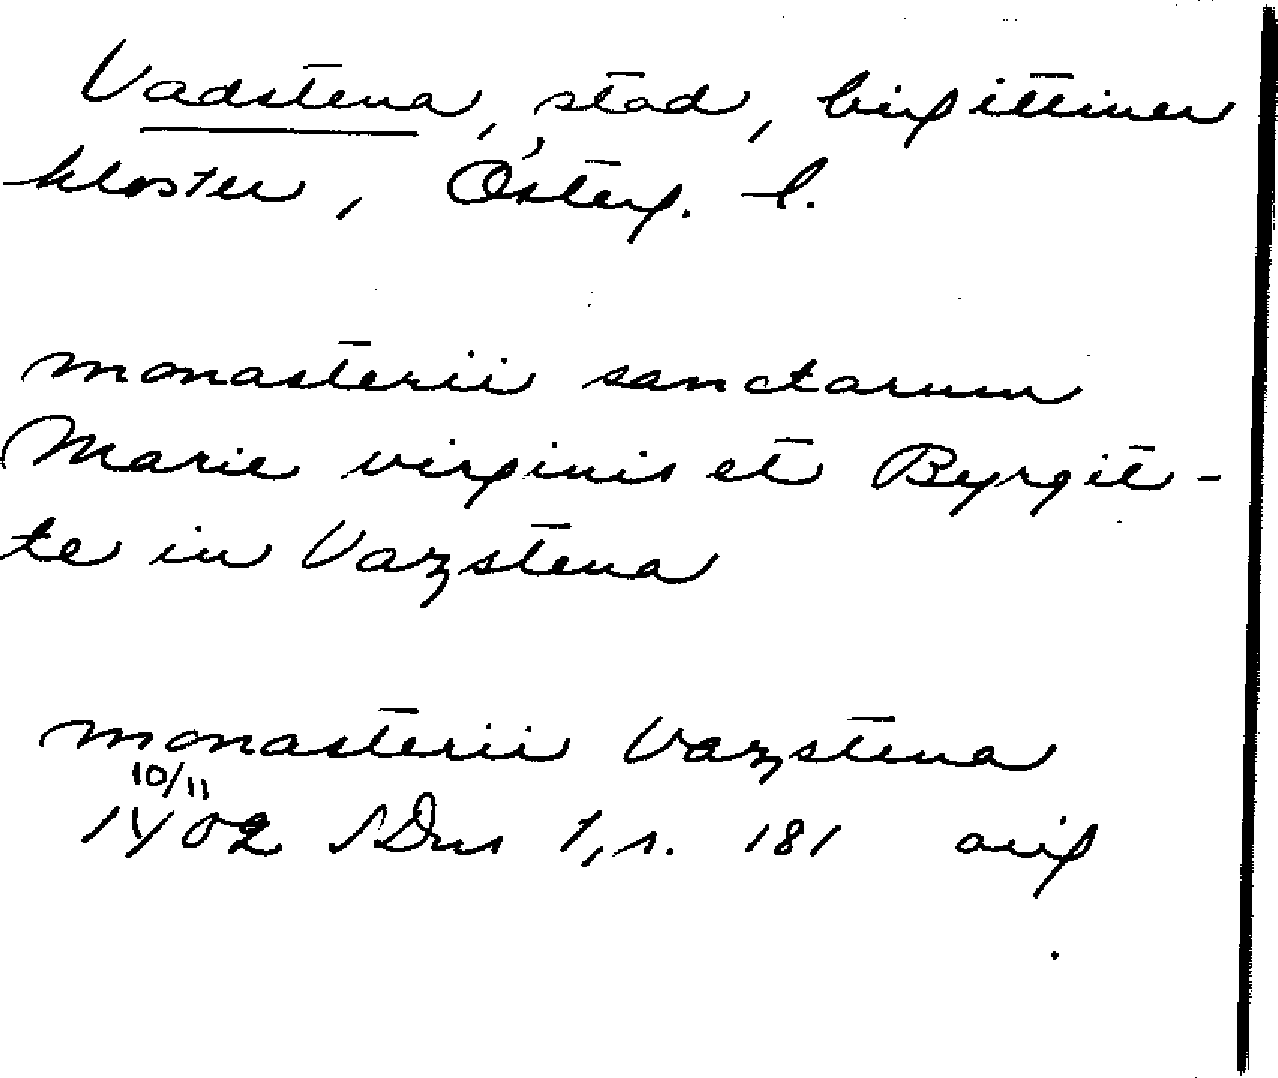 Vadstena, stad, birgittiner
kloster, Österg. l.
monasterii sanctarum
Marie virginis et Byrgit-
te in Vazstena
monasterii Vazstena
10/11
1402 SDns 1, s. 181 orig